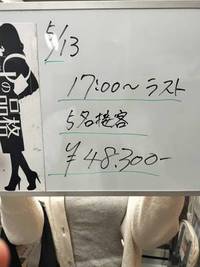 5/13
17:00～ラスト
5名接客
¥48.300-
の品格